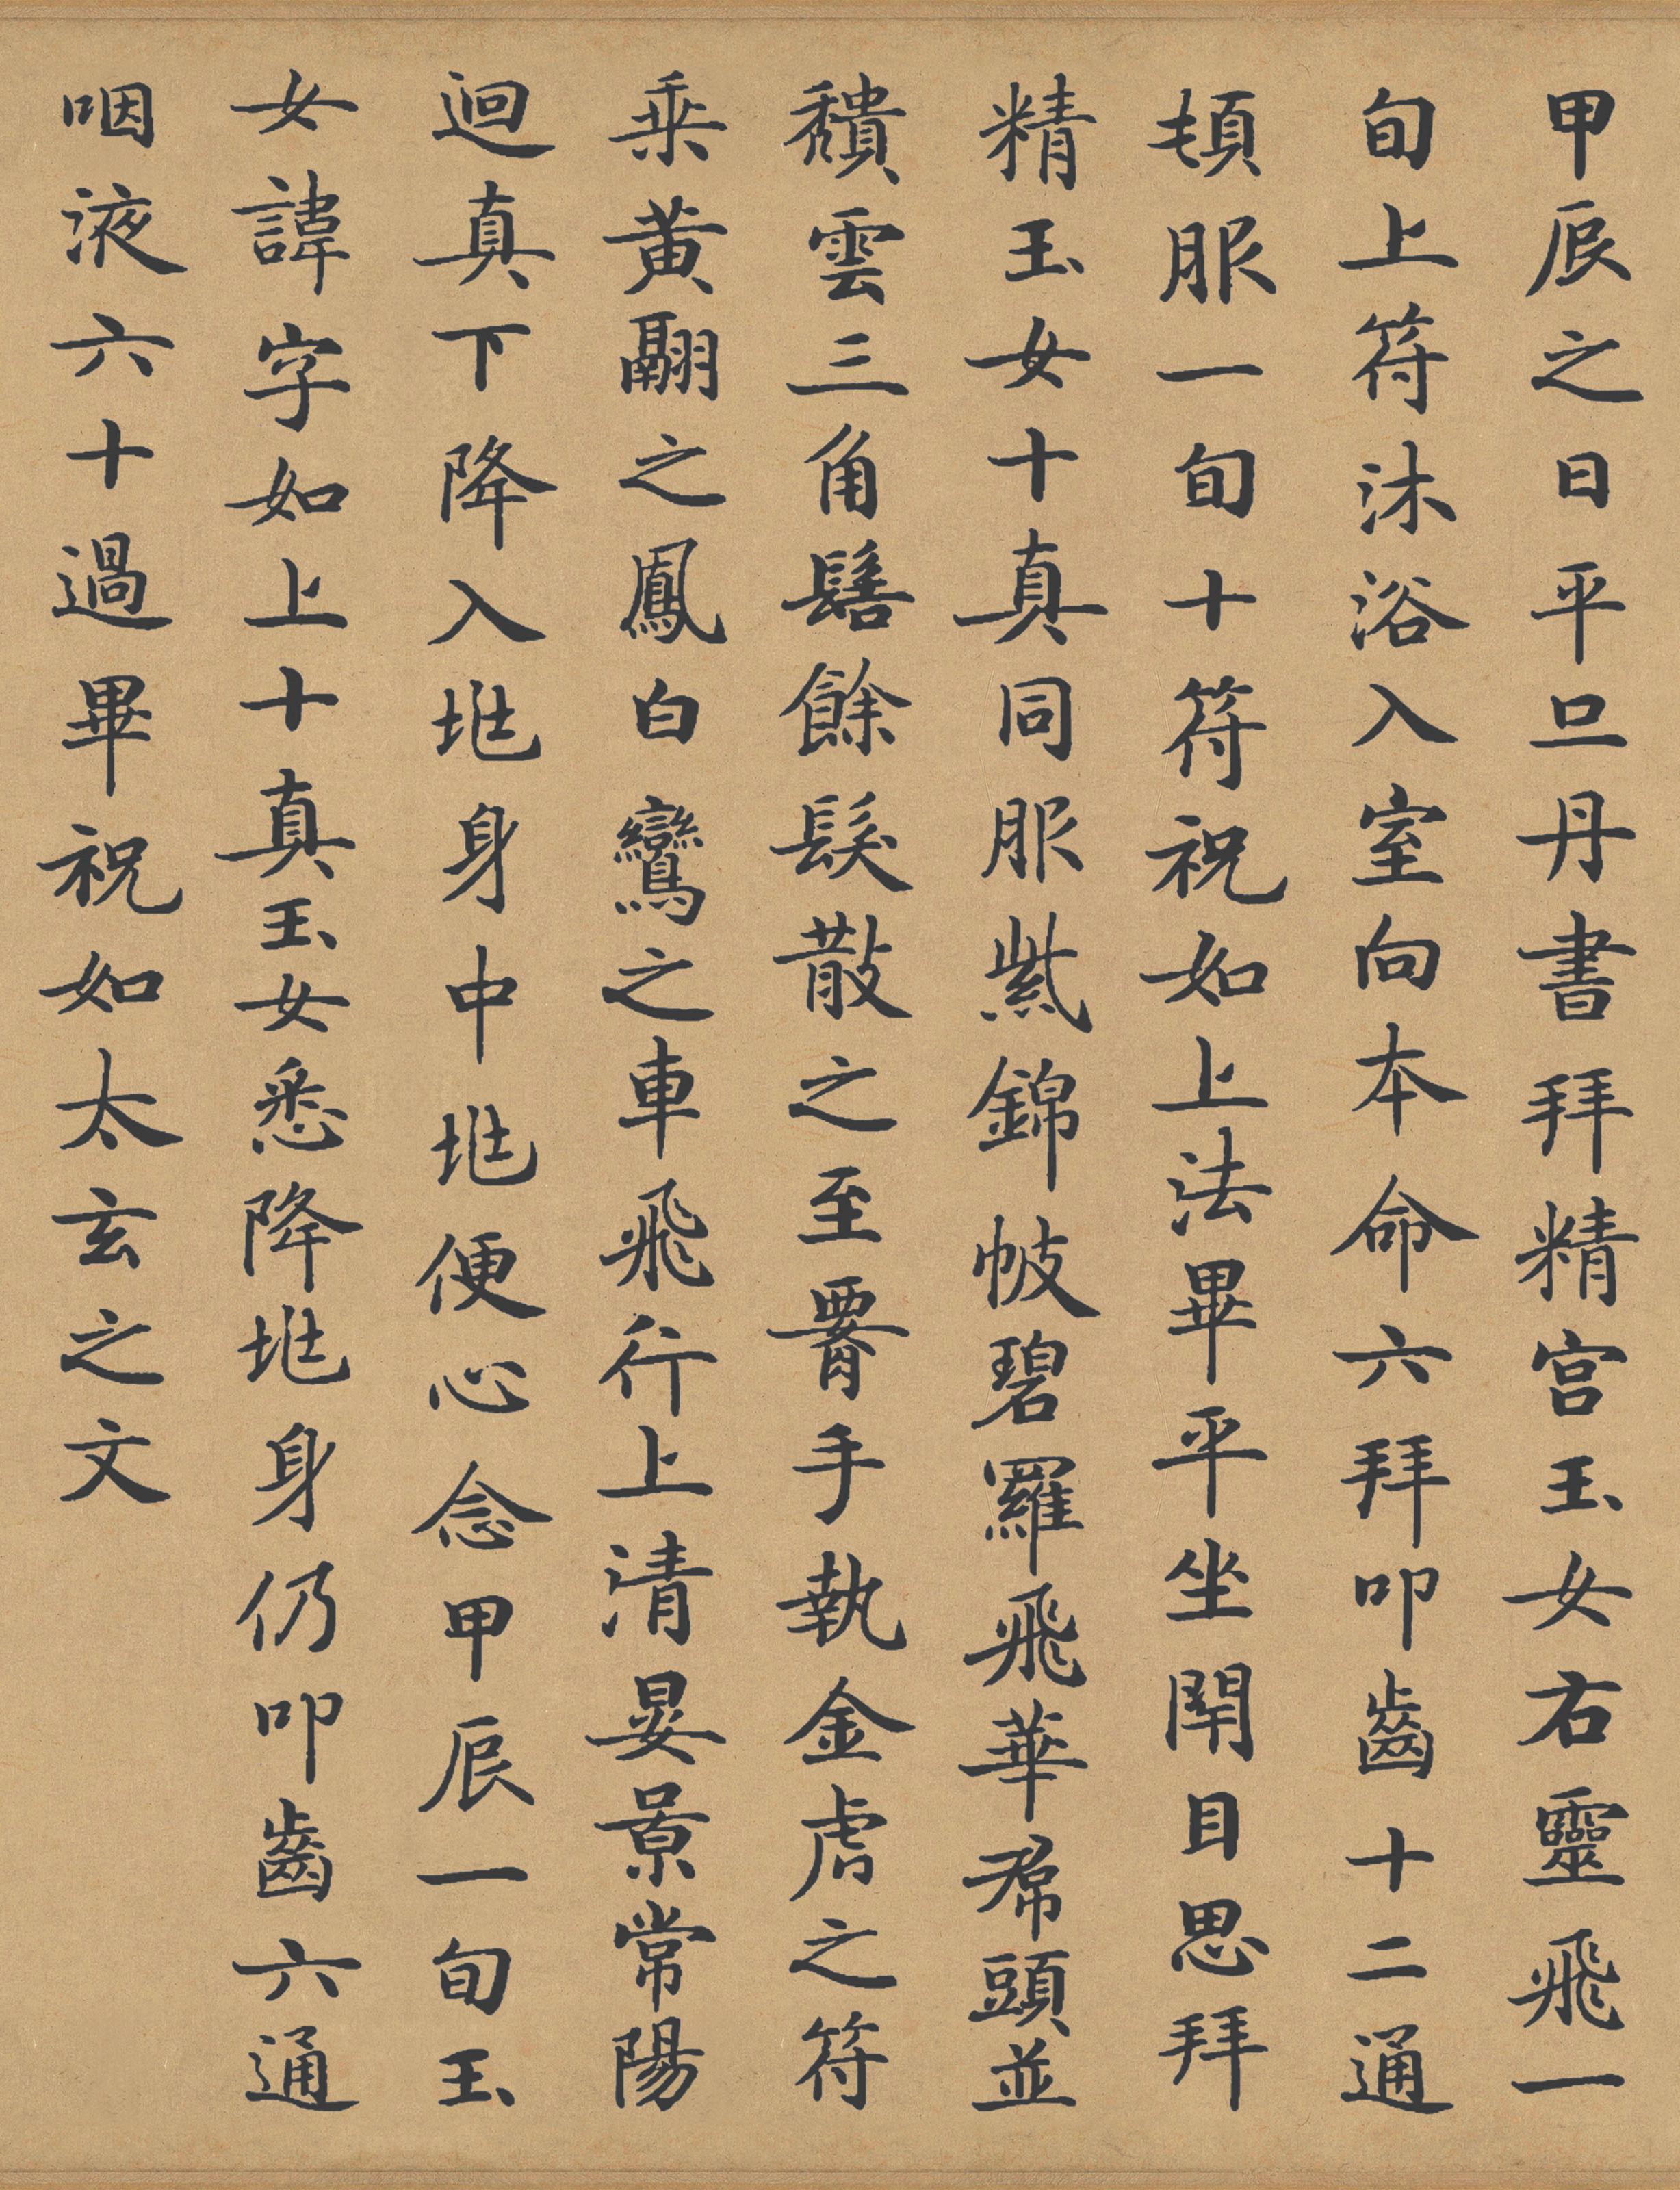 甲辰之日平旦丹書拜精宮玉女右靈飛一
旬上符沐浴入室向本命六拜叩齒十二通
頓服一旬十符祝如上法畢平坐閉目思拜
精玉女十真同服紫錦帔碧羅飛華帬頭並
穨雲三角髻餘髮散之至腰手執金虎之符
乘黃翮之鳳白鸞之車飛行上清晏景常陽
迴真下降入地身中地便心念甲辰一旬玉
女諱字如上十真玉女悉降地身仍叩齒六通
咽液六十過畢祝如太玄之文